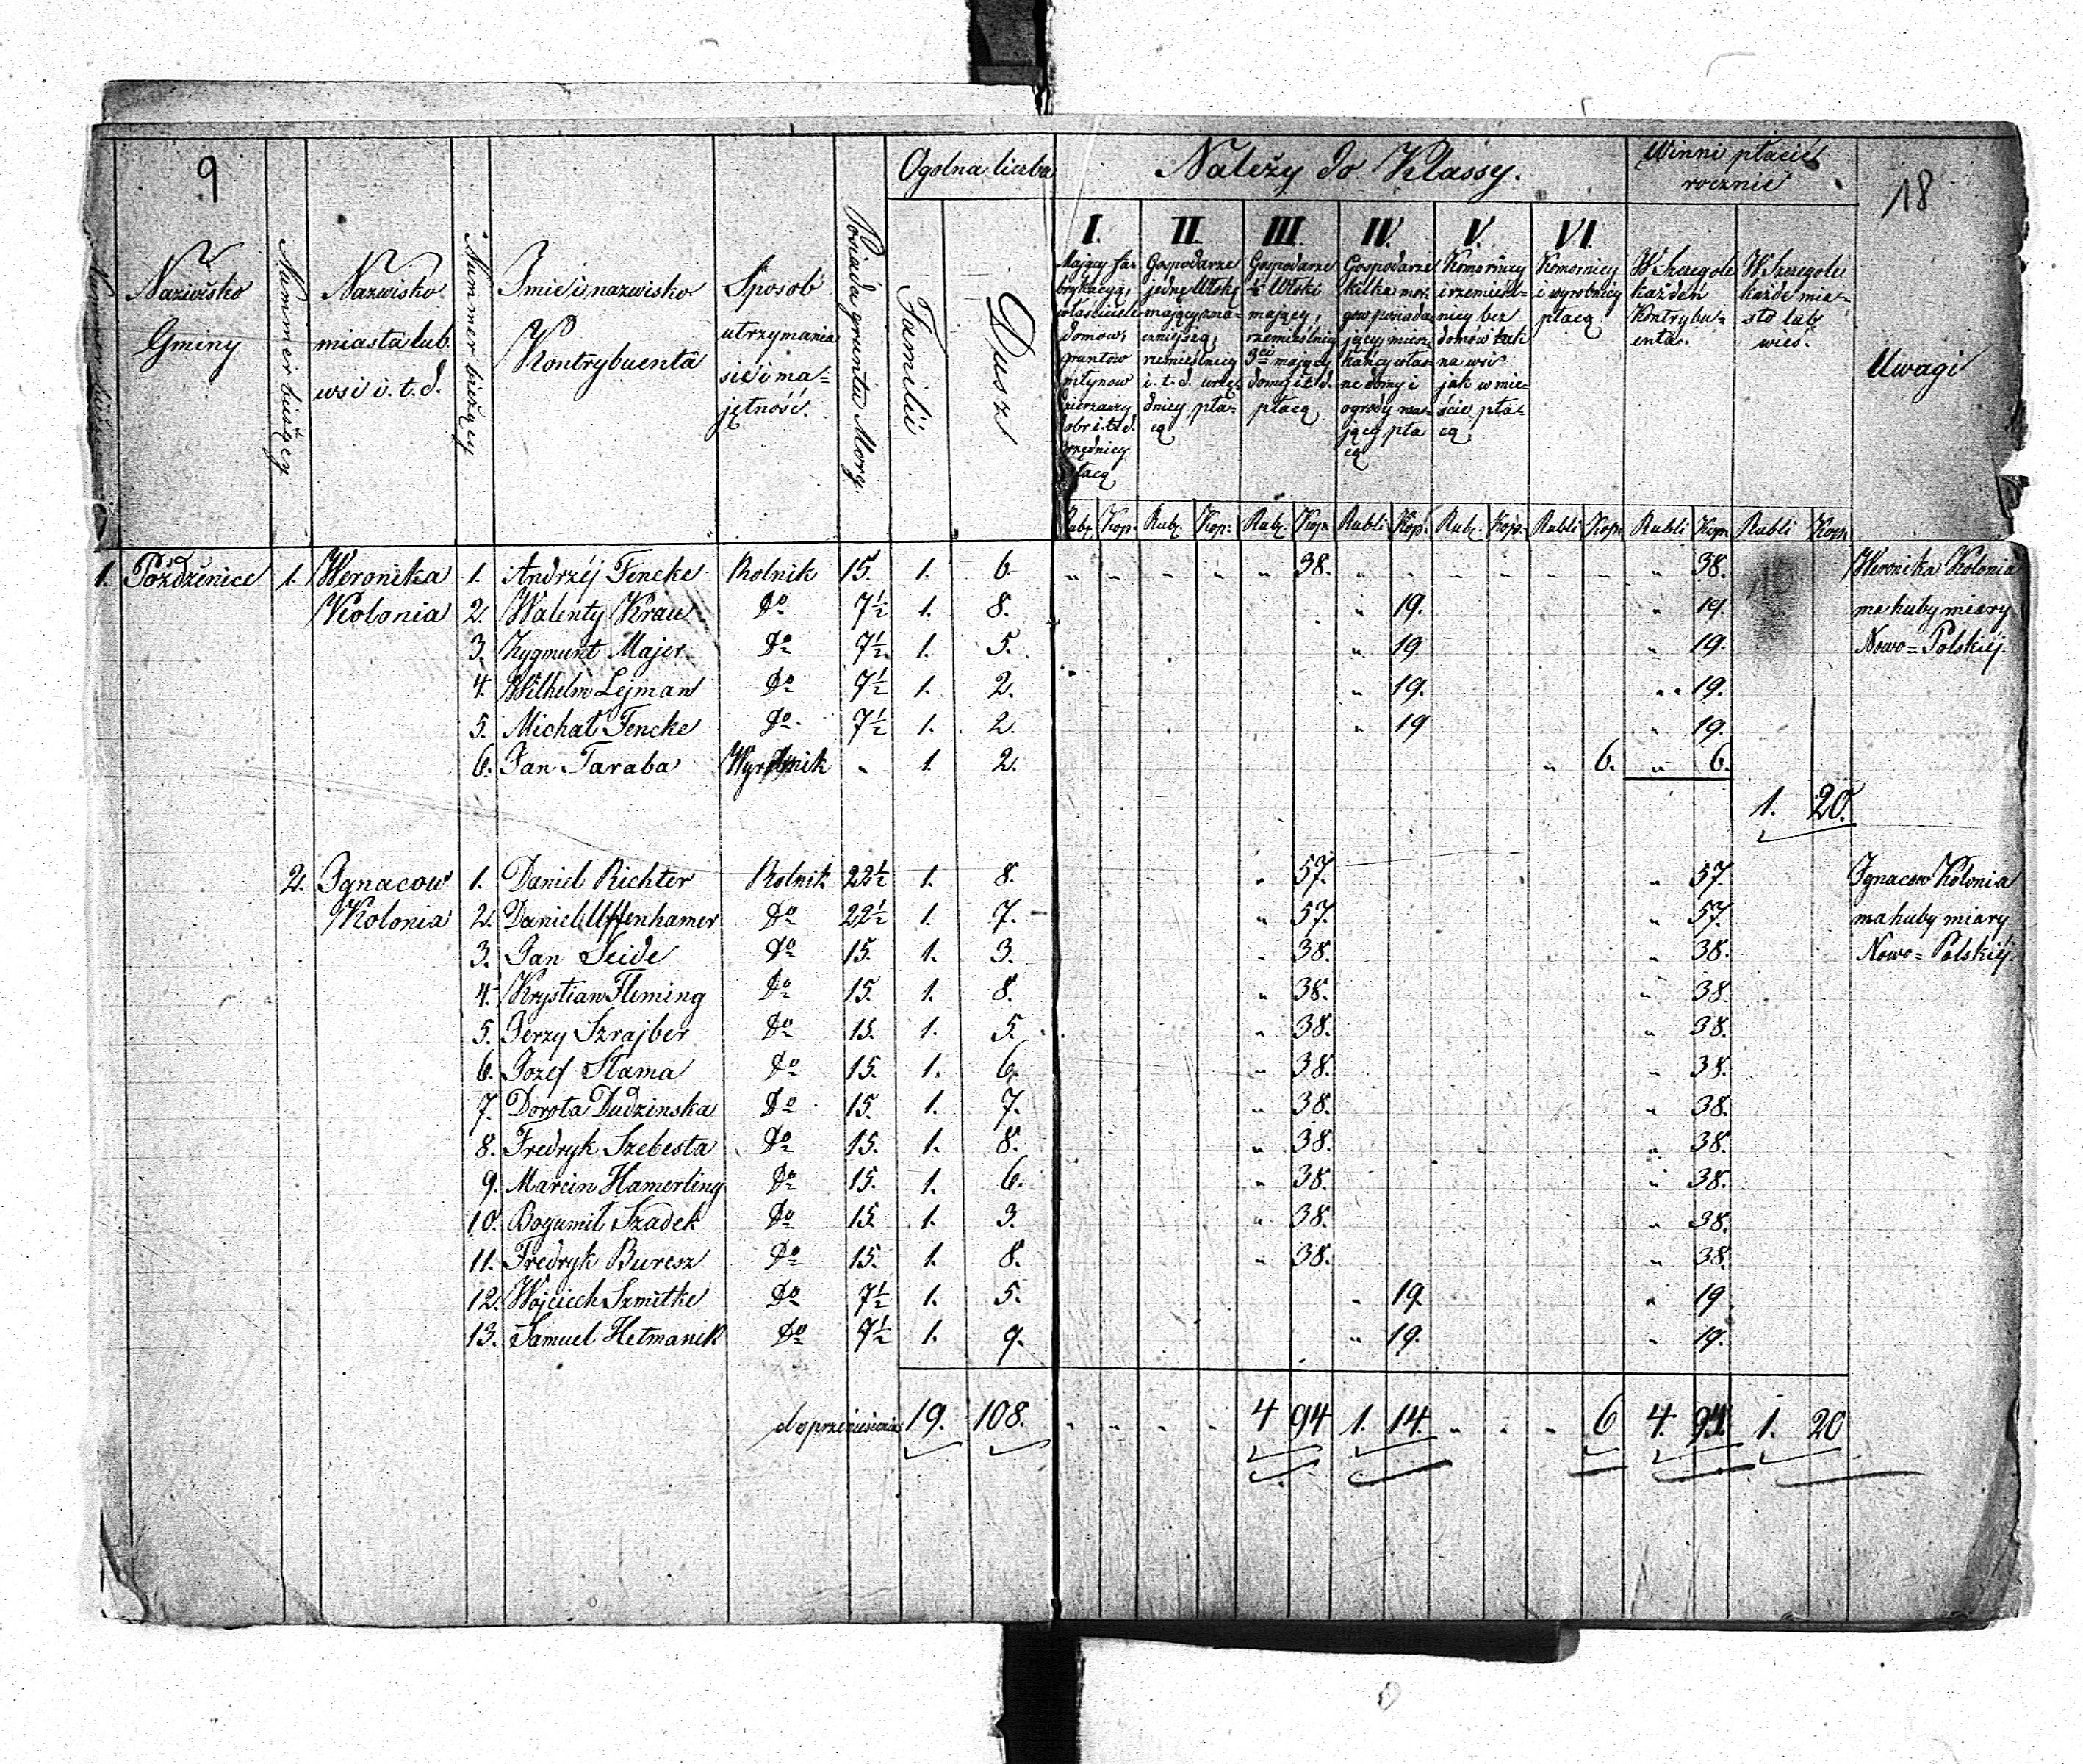 9
18
Nummer bieżący
Nazwisko
Gminy
Nummer bieżący
Nazwisko
miasta lub
wsi i. t. d.
Nummer bieżący
Imie i nazwisko
Kontrybuenta
Sposob
utrzymania
sie i ma=
jętność.
Posiada gruntu Morg.
Ogolna liczba
Familii
Dusz
Należy do Klassy.
I.
Mający fa=
brykacyą,
właściciele
domow,
gruntow
młynow
Dzierzawcy
dobr i. t. d.
Urzędnicy
płacą
II.
Gospodarze
jedne Włokę
mający zna=
cznieyszą,
rzemieslnicy
i. t. d. urzę=
dnicy pła=
cą
III.
Gospodarze
½ Włoki
mający,
rzemieślnicy
3ci mający
domy i. t. d.
płacą
IV.
Gospodarze
kilka mor=
gow posiada=
jący, miesz=
kańcy włas=
ne domy i
ogrody ma=
jący pła
cą
V.
Komornicy
i rzemieśl=
nicy bez
domów tak
na wsi
jak w mie=
ście pła=
cą
VI.
Komornicy
i wyrobnicy
płacą
Winni płacić
rocznie
W Szczegole
każden
Kontrybu=
enta.
W Szczegole
każde mia=
sto lub
wieś.
Uwagi
Rub. Kop. Rub. Kop. Rub. Kop. Rubli Kop. Rub. Kop. Rubli Kop. Rubli Kop. Rubli Kop.
1. Pożdżenice 1. Weronika 1. Andrzéj Fencke Rolnik 15. 1. 6 " " " " " 38. " " " " " " " 38. Weronika Kolonia
Kolonia 2. Walenty Krau Do 7½ 1. 8. " 19. " 19. ma huby miary
3. Zygmunt Majer Do 7½ 1. 5. " 19 " 19. Nowo=Polskiéj.
4. Wilhelm Lejman Do 7½ 1. 2. " 19. " 19.
5. Michał Fencke Do 7½ 1. 2. " 19 " 19.
6. Jan Taraba Wyrobnik " 1. 2. " 6. " 6.
1. 20.
2. Ignacow 1. Daniel Richter Rolnik 22½ 1. 8. " 57. " 57. Ignacow Kolonia
Kolonia 2. Daniel Uffenhamer Do 22½ 1. 7. " 57. " 57. ma huby miary
3. Jan Seide Do 15. 1. 3. " 38. " 38. Nowo=Polskiéj.
4. Krystian Fleming Do 15. 1. 8. " 38. " 38.
5. Jerzy Szrajber Do 15. 1. 5. " 38. " 38.
6. Jozef Slama Do 15. 1. 6. " 38. " 38.
7. Dorota Dudzinska Do 15. 1. 7. " 38. " 38.
8. Fredryk Szebesta Do 15. 1. 8. " 38. " 38.
9. Marcin Hamerling Do 15. 1. 6. " 38. " 38.
10. Bogumił Szadek Do 15. 1. 3. " 38. " 38.
11. Fredryk Buresz Do 15. 1. 8. " 38. " 38.
12. Wojciech Szmitke Do 7½ 1. 5. " 19. " 19
13. Samuel Hetmanik Do 7½ 1. 9. " 19. " 19.
do przeniesienia 19. 108. " " " " 4 94 1. 14. " " " 6 4. 94. 1. 20